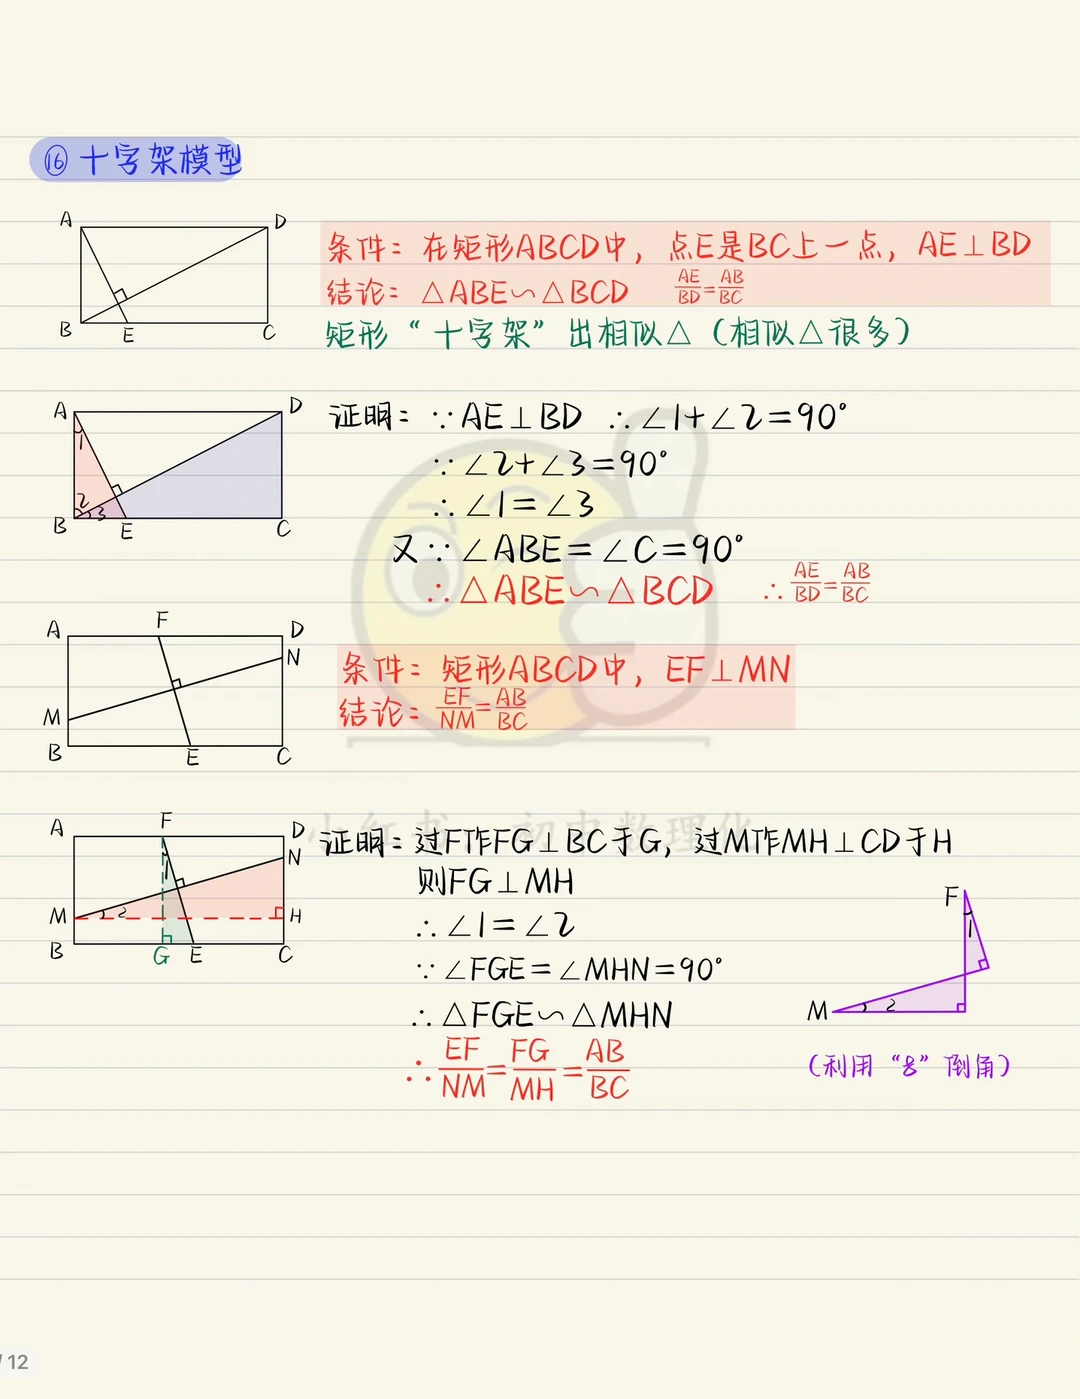 ⑯ 十字架模型
A D
B E C
条件：在矩形ABCD中，点E是BC上一点，AE⊥BD
结论：△ABE∽△BCD AE/BD=AB/BC
矩形“十字架”出相似△（相似△很多）
A D
1
2
3
B E C
证明：∵AE⊥BD ∴∠1+∠2=90°
∵∠2+∠3=90°
∴∠1=∠3
又∵∠ABE=∠C=90°
∴△ABE∽△BCD ∴AE/BD=AB/BC
A F D
N
M
B E C
条件：矩形ABCD中，EF⊥MN
结论：EF/NM=AB/BC
小红书：初中数理化
A F D
N
1
M 2 H
B G E C
证明：过F作FG⊥BC于G，过M作MH⊥CD于H
则FG⊥MH
∴∠1=∠2
∵∠FGE=∠MHN=90°
∴△FGE∽△MHN
∴EF/NM=FG/MH=AB/BC
F
1
M 2
（利用“8”倒角）
/ 12